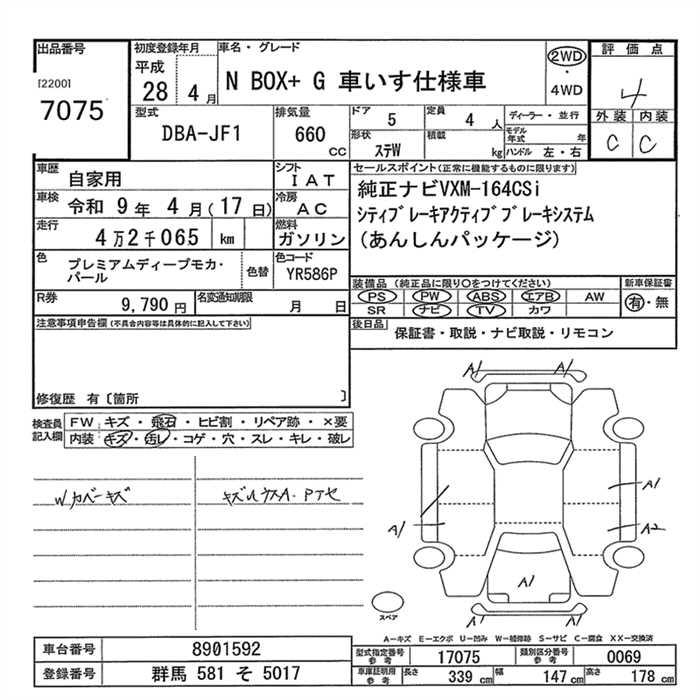 出品番号
[2200]
7075
初度登録年月
平成
28 4 月
車名・グレード
N BOX+ G 車いす仕様車
2WD
・
4WD
評価点
4
外装 内装
C C
型式
DBA-JF1
排気量
660
CC
ドア 5
定員 4 人
ディーラー・並行
形状 ステW
積載 kg
モデル年式 年
ハンドル 左・右
車歴 自家用
シフト IAT
車検 令和 9 年 4 月 (17 日)
冷房 AC
走行 4万2千065 km
燃料 ガソリン
セールスポイント(正常に機能するものに限ります)
純正ナビVXM-164CSi
シティブレーキアクティブブレーキシステム
(あんしんパッケージ)
色 プレミアムディープモカ・パール
色替
色コード YR586P
R券 9,790 円
名変通知期限 月 日
装備品 (純正品に限り○をつけてください)
PS PW ABS エアB AW
SR ナビ TV カワ
新車保証書
有・無
後日品
保証書・取説・ナビ取説・リモコン
注意事項申告欄(不具合内容等は具体的に記入して下さい)
修復歴 有〔箇所 〕
検査員記入欄
FW キズ・飛石・ヒビ割・リペア跡・×要
内装 キズ・汚レ・コゲ・穴・スレ・キレ・破レ
Wカバーキズ
キズルウスA.Pアセ
A1
A1
A1
A1
A2
A1
A1
A1
スペア
A-キズ E-エクボ U-凹み W-補修跡 S-サビ C-腐食 XX-交換済
車台番号 8901592
登録番号 群馬 581 そ 5017
型式指定番号参考 17075
類別区分番号参考 0069
車庫証明用参考 長さ 339 cm 幅 147 cm 高さ 178 cm